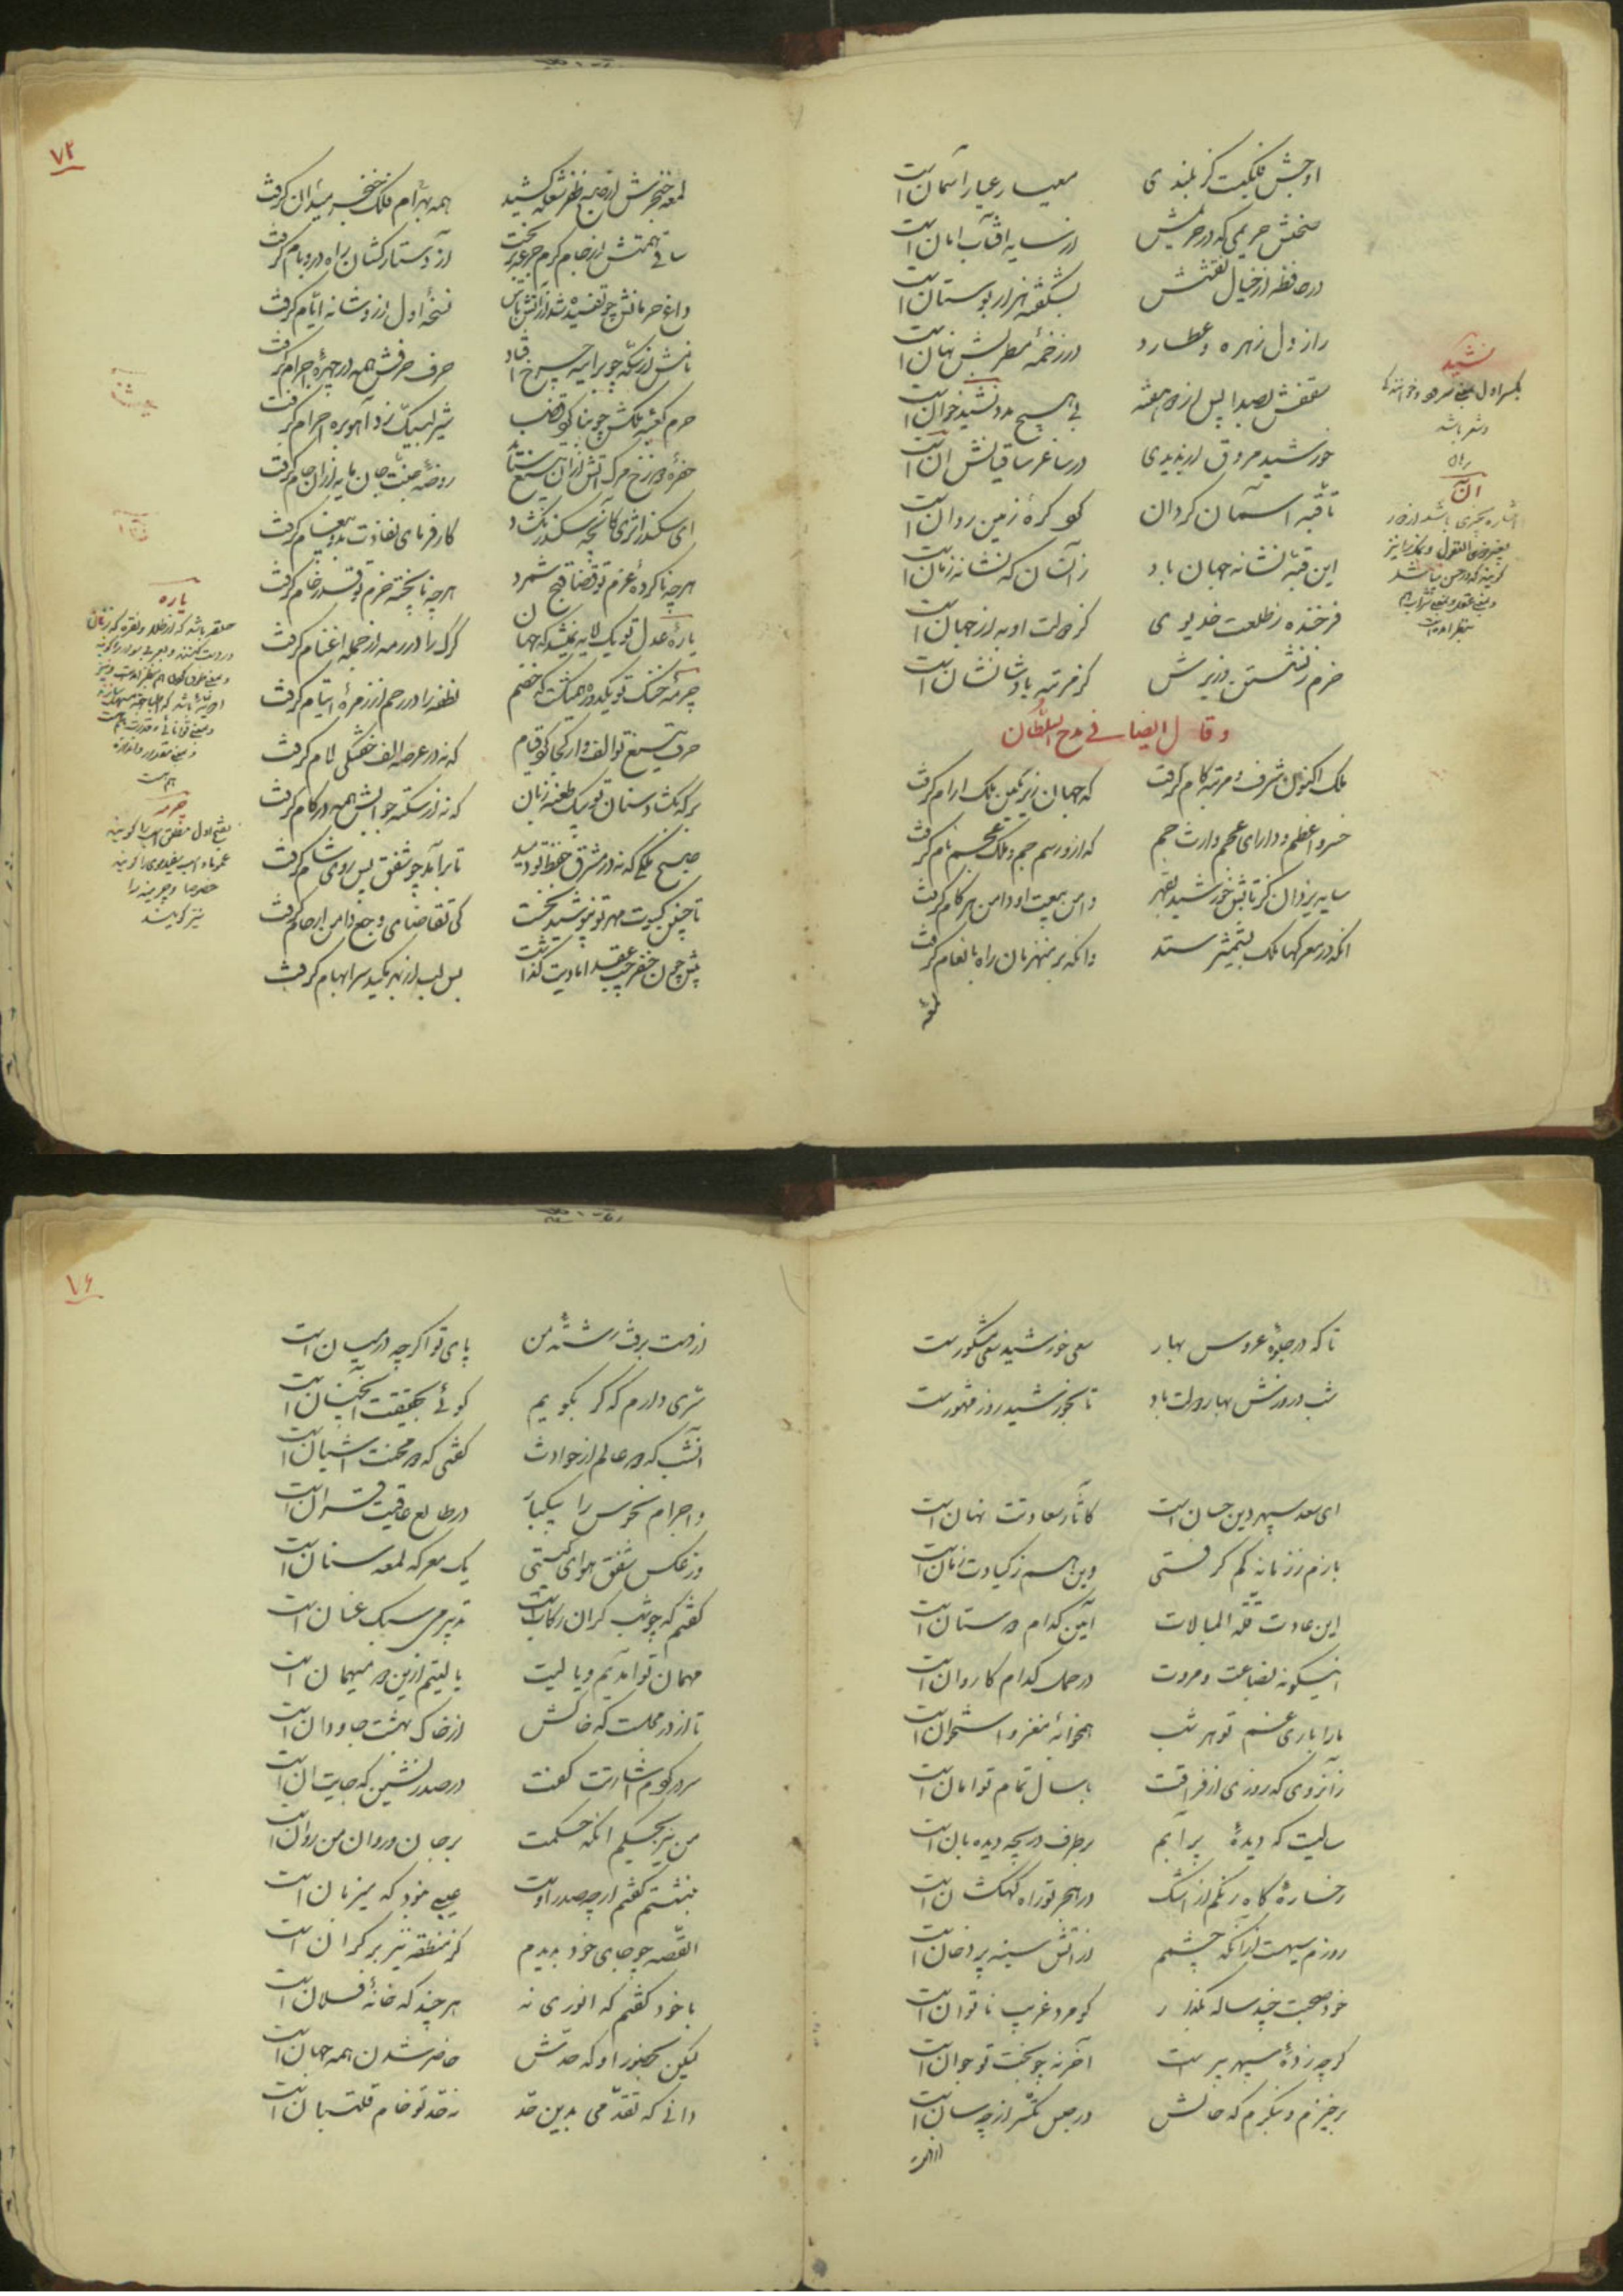 اوجش فلکیست کز بلندی معیار عیار آسمان است
صحنش حریمی که در حریمش از سایه آفتاب امان است
در حافظه از خیال نقشش بشکفته هزار بوستان است
راز دل زهره و عطارد در زخمهٔ مطربش نهان است
سقفش بصدا پس از دو هفته بی هیچ مدد نشید خوان است
خورشید مروق ار ندیدی در ساغر ساقیانش آن است
تا قبه آسمان گردان گرد کرهٔ زمین روان است
این قبه نشانه جهان باد زانسان که نشانه زمان است
فرخنده ز طلعت خدیوی کز دولت او به از جهان است
خرم ز نشستن وزیرش کز مرتبه پادشا نشان است
وقال ایضا فی مدح السلطان
ملک اکنون شرف و مرتبه و کام گرفت که جهان زیر نگین ملک ارام گرفت
خسرو اعظم و دارای عجم وارث جم که ازو رسم جم و ملک عجم نام گرفت
سایه یزدان کز تابش خورشید بقهر دامن بیعت او دامن هر کام گرفت
انکه در معرکها ملک بشمشیر ستد وانکه بر منهزمان راه بانعام گرفت
لمعه
نشید
بکسر اول بمعنی سرود و خوانندگی
و شعر باشد
آن
۷۲
لمعه خنجرش از صبح ظفر شعله کشید همه بهرام فلک خنجر میدان گرفت
ساقی همتش از جام کرم جرعه بریخت آز دستارکشان راه در و بام گرفت
داغ حرمانش چو تفسیده شد از آتش یأس نسخه اول ازو شانه ایام گرفت
نامش از سکه چو بر آینه چرخ افتاد حرف حرفش همه در چهرهٔ اجرام گرفت
حرم کعبه ملکش چو بنا کرد قضا شیر لبیک زد آهو بره احرام گرفت
حفرهٔ دوزخ مرگ آتش ازان تیغ ستد روضهٔ جنت جان مایه ازان جام گرفت
ای سکندر اثری کانچه سکندر بگشاد کارفرمای نفاذت بدو پیغام گرفت
هرچه ناکردهٔ عزم تو قضا فسخ شمرد هرچه ناپخته حزم تو قدر خام گرفت
پارهٔ عدل تو یک لایه نپیچید که جهان گرگ را در رمه از جمله اغنام گرفت
چرمهٔ خنگ تو یک دوره همگشت که خصم نطفه را در رحم از زمرهٔ ایتام گرفت
حرف تیغ تو الف وار کجا کرد قیام که نه در عرصه الف خفتگی لام گرفت
برکه بگشاد سنان تو بیک طعنه زبان که نه از سکته جوابش همه در کام گرفت
صبح ملکی که نه در مشرق حفظ تو دمید تا برآمد چو شفق پس روی شام گرفت
تا چنین کسوت مهر تو نپوشید نخست کی تقاضای وجع دامن ارحام گرفت
پیش چون خضر چپ عقد ایادیت گذاشت پس لب از بهر مکیدن سر ابهام گرفت
یاره
حلقه باشد که از طلا و نقره که زنان
در دست کنند
جرمه
بفتح اول مطلق اسب را گویند
عموما و اسب سفیدموی را گویند
خصوصا
نیز گویند
تا که در جلوهٔ عروس بهار سعی خورشید سعی مشکورست
شب و روزش بهار دولت باد تا بخورشید روز مشهورست
ای سعد سپهر دین حسان است کاثار سعادتت نهان است
بازم ز زمانه کم گرفتی وین هم ز کیادت زمان است
این عادت قلة المبالات آیین کدام دوستان است
اینگونه بضاعت و مروت در حمل کدام کاروان است
ما را باری غم تو هر شب همخوانهٔ مغز و استخوان است
زانروی که روزی از فراقت با سال تمام توامان است
سالیست که دیدهٔ پر آبم بر طرف دریچه دیده بان است
رخسارهٔ کاه رنگم از اشک در هجر تو راه کهکشان است
روزم سیهست ازانکه چشمم از آتش سینه پر دخان است
خود صحبت چند ساله بگذار گو مرد غریب ناتوان است
گرچه زدهٔ سپهر پیر است آخر نه چو بخت تو جوان است
برخیزم و بنگرم که حالش در حبس تکسر از چه سان است
از دست
۷۶
از دست برفت رشتهٔ من پای تو اگرچه در میان است
سری دارم که گر بگویم گوئی بحقیقت آنچنان است
آنشب که دو عالم از حوادث گفتی که دو محنت آشیان است
و اجرام نحوس را بیکبار در طالع عافیت قران است
وز عکس شفق هوای گیتی یک معرکه لمعه سنان است
گفتم که چو شب گران رکابست تدبیر می سبک عنان است
مهمان تو آمدیم و یا لیت یا لیتم ازین دو میهمان است
تا از در مجلست که خاکش از خاک بهشت جاودان است
سر در کردم اشارتت گفت در صدر نشین که جایت آن است
من نیز بحکم آنکه حکمت بر جان و روان من روان است
بنشستم گفتم ارچه صدر اوست عیبی نبود که میزبان است
القصه چو جای خود بدیدم کز منطقه نیز بر کران است
با خود گفتم که انوری نه هرچند که خانهٔ فلان است
لیکن بحضور او که حدش حاضر شدن همه جهان است
دانی که تقدمی بدین حد نه حد تو خام قلتبان است